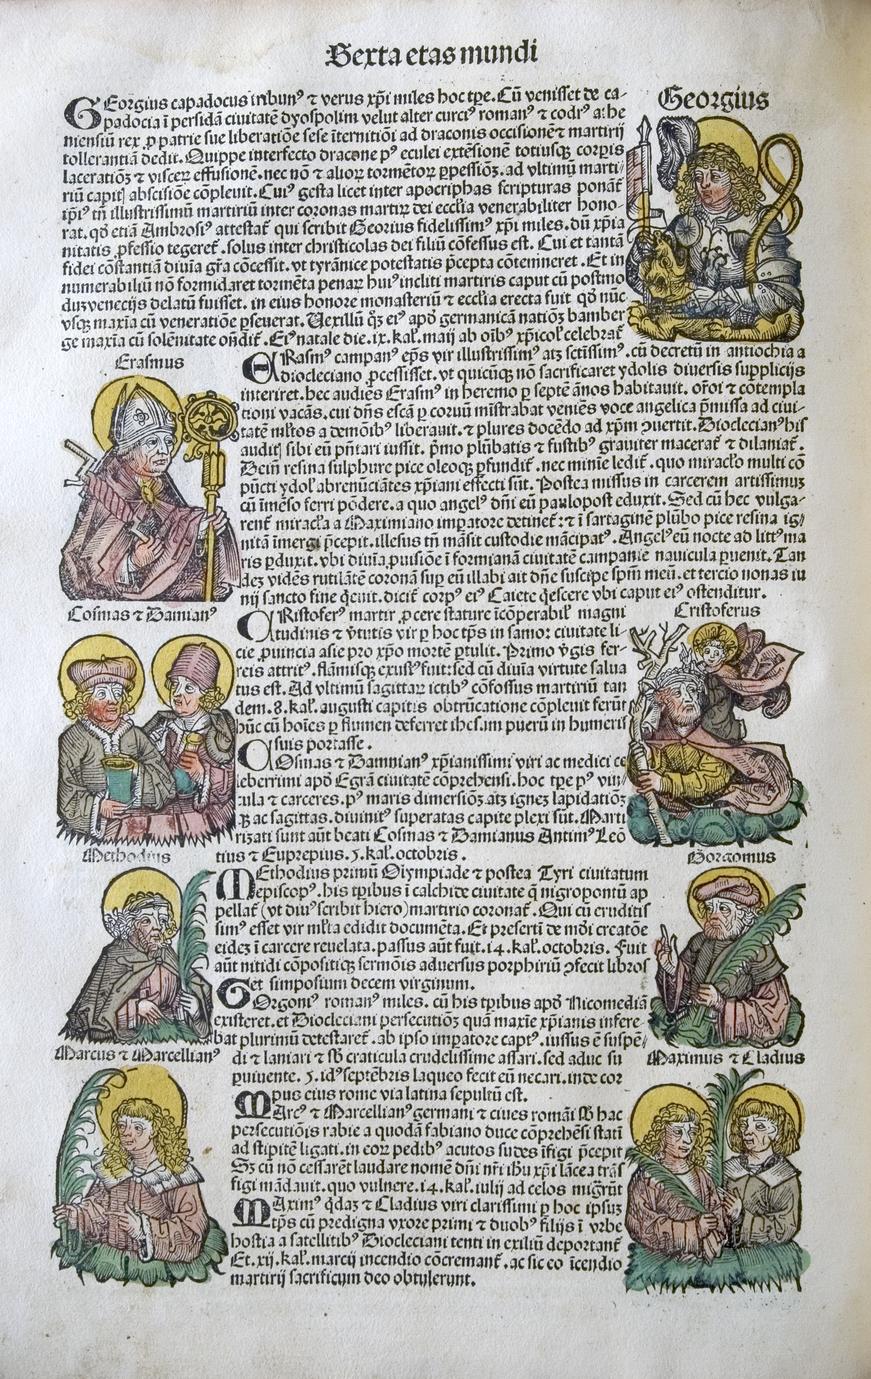 Sexta etas mundi
Georgius
GEorgius capadocus tribun⁹ ⁊ verus xp̄i miles hoc tp̄e. Cū venisset de ca-
padocia ī persidā ciuitatē dyospolim velut alter curci⁹ roman⁹ ⁊ codr⁹ athe
niensiū rex ꝓ patrie sue liberatiōe sese īternitiōi ad draconis occisionē ⁊ martirij
tollerantiā dedit. Quippe interfecto dracone p⁹ eculei extēsionē totiusqꝫ corpis
laceratiōꝫ ⁊ viscerꝝ effusionē. nec nō ⁊ aliorꝝ tormētorꝝ ꝑpessiōꝫ. ad vltimū marti-
riū capit̄ abscisiōe cōpleuit. Cui⁹ gesta licet inter apocriphas scripturas ponāt̄
ip̄i⁹ tn̄ illustrissimū martiriū inter coronas martirꝝ dei eccl̄ia venerabiliter hono-
rat. qd̄ etiā Ambrosi⁹ attestat̄ qui scribit Georius fidelissim⁹ xp̄i miles. dū xp̄ia
nitatis ꝓfessio tegeret̄. solus inter christicolas dei filiū cōfessus est. Cui et tantā
fidei cōstantiā diuīa gr̄a cōcessit. vt tyrānice potestatis p̄cepta cōtemneret. Et in
numerabiliū nō formidaret tormēta penarꝝ hui⁹ incliti martiris caput cū postmo
duꝫ venecijs delatū fuisset. in eius honore monasteriū ⁊ eccl̄ia erecta fuit qd̄ nūc
vsqꝫ maxīa cū veneratiōe ꝑseuerat. Vexillū qꝫ ei⁹ apd̄ germanicā natiōꝫ bamber
ge maxīa cū solēnitate ondit̄. Ei⁹ natale die. ix. kal̄. maij ab oīb⁹ xp̄icol̄ celebrat̄
Erasmus
ERasm⁹ campan⁹ ep̄s vir illustrissim⁹ atqꝫ sctissim⁹. cū decretū in antiochia a
dioclecianо ꝓcessisset. vt quicūqꝫ nō sacrificaret ydolis diuersis supplicijs
interiret. hec audiēs Erasm⁹ in heremo ꝑ septē ānos habitauit. orōi ⁊ cōtempla
tioni vacās. cui dn̄s escā ꝑ coruū mīstrabat veniēs voce angelica p̄missa ad ciui-
tatē ml̄tos a demōib⁹ liberauit. ⁊ plures docēdo ad xp̄m ꝯuertit. Dioclecian⁹ his
audit̄ sibi eū p̄ntari iussit. p̄mo plūbatis ⁊ fustib⁹ grauiter macerat̄ ⁊ dilaniat̄.
Dein̄ resina sulphure pice oleoqꝫ ꝑfundit̄. nec minīe ledit̄. quo miracl̄o multi cō
pūcti ydol̄ abrenūciātes xp̄iani effecti sūt. Postea missus in carcerem artissimuꝫ
cū īmēso ferri pōdere. a quo angel⁹ dn̄i eū paulopost eduxit. Sed cū hec vulga-
rent̄ miracl̄a a Maximiano imꝑatore detinet̄: ⁊ ī sartaginē plūbo pice resina ig-
nitā īmergi p̄cepit. illesus tn̄ māsit custodie mācipat⁹. Angel⁹ eū nocte ad litt⁹ ma
ris ꝑduxit. vbi diuīa ꝓuisiōe ī formianā ciuitatē campanie nauicula ꝑuenit. Tan
deꝫ vidēs rutilātē coronā suꝑ eū illabi ait dn̄e suscipe spm̄ meū. et tercio nonas iu
nij sancto fine qeuit. dicit̄ corp⁹ ei⁹ Caiete qescere vbi caput ei⁹ ostenditur.
Cosmas ⁊ Damian⁹
Cristoferus
CRistofer⁹ martir ꝓcere stature īcōperabil̄ magni
tudinis ⁊ v̄tutis vir ꝑ hoc tp̄s in samo: ciuitate li-
cie ꝓuincia asie pro xp̄o mortē ꝑtulit. Primo v̄gis fer-
reis attrit⁹. flāmisqꝫ exust⁹ fuit: sed cū diuīa virtute salua
tus est. Ad vltimū sagittarꝝ ictib⁹ cōfossus martiriū tan
dem. 8. kal̄. augusti capitis obtrūcatione cōpleuit ferūt
hūc cū hoīes ꝑ flumen deferret ihesum puerū in humeris
suis portasse.
COsmas ⁊ Damnian⁹ xp̄ianissimi viri ac medici ce
leberrimi apd̄ Egēā ciuitatē cōprehensi. hoc tp̄e p⁹ vin-
cula ⁊ carceres. p⁹ maris dimersiōꝫ atqꝫ igneꝫ lapidatiōꝫ
qꝫ ac sagittas. diuinit⁹ superatas capite plexi sūt. Marti
rizati sunt aūt beati Cosmas ⁊ Damianus Antim⁹ Leō
tius ⁊ Euprepius. 5. kal̄. octobris.
Methodius
Gorgomus
MEthodius primū Olympiade ⁊ postea Tyri ciuitatum
episcop⁹. his tp̄ibus ī calchide ciuitate q̄ nigropontū ap
pellat̄ (vt diu⁹ scribit hiero) martirio coronat̄. Qui cū eruditis
sim⁹ esset vir ml̄ta edidit documēta. Et presertī de mōi creatōe
eideꝫ ī carcere reuelata. passus aūt fuit. 14. kal̄. octobris. Fuit
aūt nitidi cōpositiqꝫ sermōis aduersus porphiriū ꝯfecit libros
et simposium decem virginum.
GOrgoni⁹ roman⁹ miles. cū his tp̄ibus apd̄ Nicomediā
existeret. et Diocleciani persecutiōꝫ quā maxīe xp̄ianis infere-
bat plurimū detestaret̄. ab ipso imꝑatore capt⁹. iussus ē suspē-
di ⁊ laniari ⁊ sb̄ craticula crudelissime assari. sed aduc su
ꝑuiuente. 5. id⁹ septēbris laqueo fecit eū necari. inde cor
pus eius rome via latina sepultū est.
Marcus ⁊ Marcellian⁹
Maximus ⁊ Cladius
MArc⁹ ⁊ Marcellian⁹ germani ⁊ ciues romāi sb̄ hac
persecutiōis rabie a quodā fabiano duce cōprehēsi statī
ad stipitē ligati. in eorꝝ pedib⁹ acutos sudes īfigi p̄cepit
Sꝫ cū nō cessarēt laudare nomē dn̄i nr̄i ihu xp̄i lācea trās
figi mādauit. quo vulnere. 14. kal̄. iulij ad celos migrūt
MAxim⁹ qdaꝫ ⁊ Cladius viri clarissimi ꝑ hoc ipsuꝫ
tp̄s cū predigna vxore primi ⁊ duob⁹ filijs ī vrbe
hostia a satellitib⁹ Diocleciani tenti in exiliū deportant̄
Et. xij. kal̄. marcij incendio cōcremant̄. ac sic eo īcendio
martirij sacrificum deo obtulerunt.